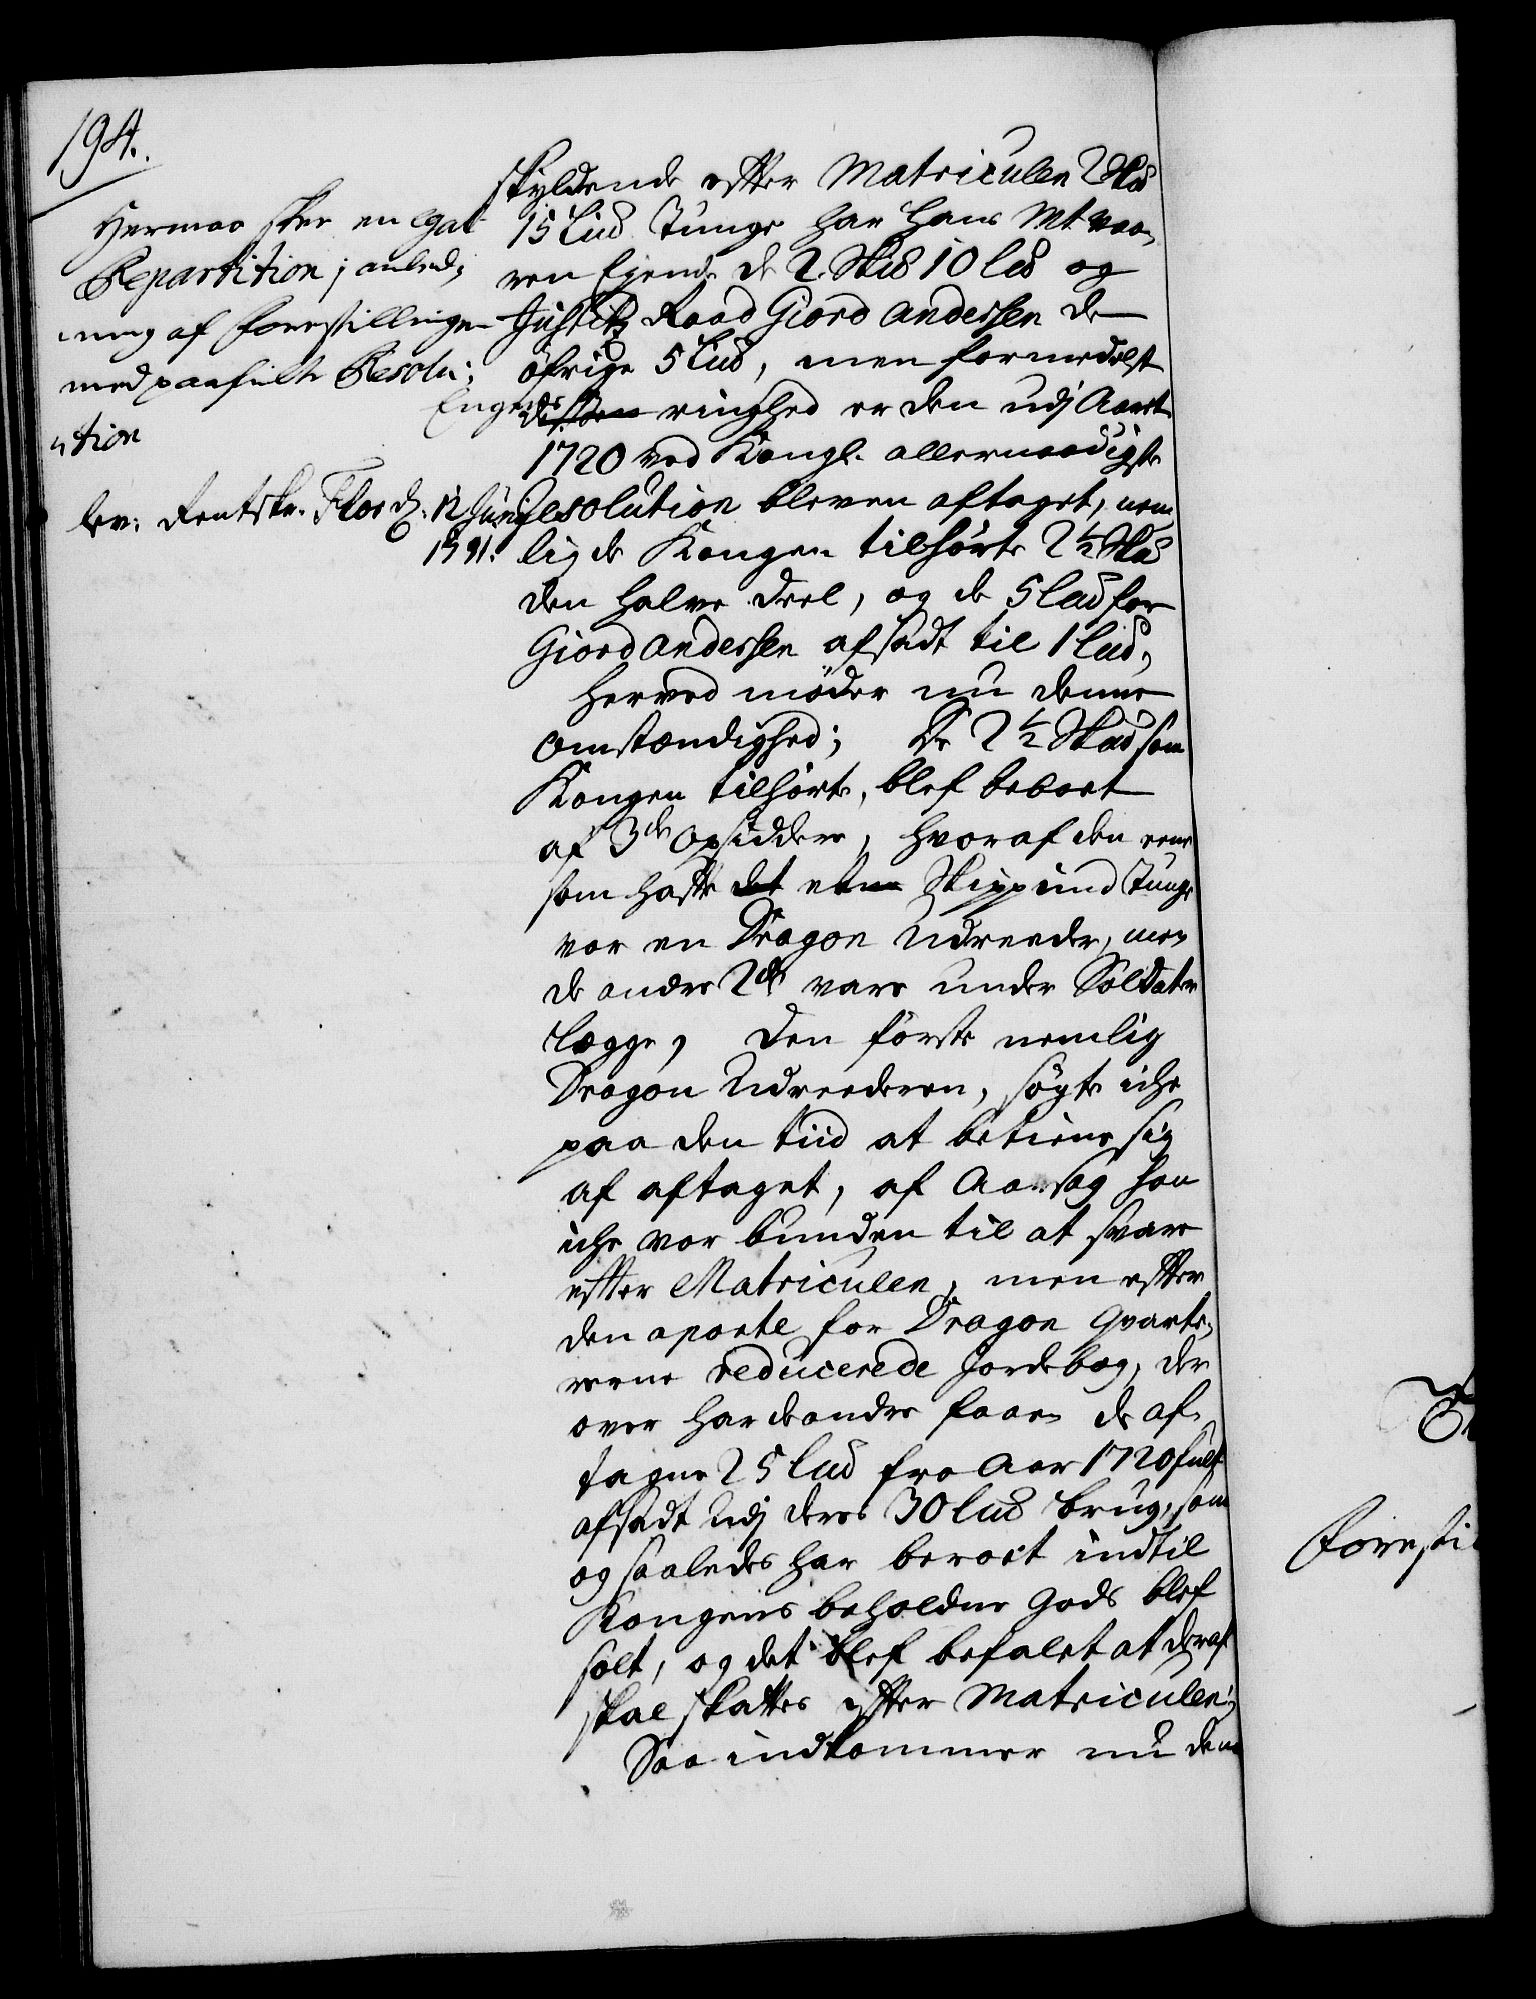 194.
Hermaa skee en egal
Repartition i anled¬
ning af forestillingen
med paafult Resolu¬
ution
lev: Rentskr. Flor d. 12 Junij
1741.
skyldende efter Matriculen 2 Skd
15 Lud Tunge har Hans Mt. væ¬
ren Ejende de 2. Skd 10 Lud og
Justitz Raad Giord Andersen de
øfrige 5 Lud, men formedelst
Engenes ringhed er den udj Aaret
1720 ved Kongl. allernaadigste
Resolution bleven aftaget, nem¬
lig de Kongen tilhørte 2 1/2 Skd
den halve deel, og de 5 Lud for
Giord Andersen afsadt til 1 Lud,
Herved møder nu denne
omstændighed; De 2 1/2 Skd som
Kongen tilhørte, blef beboet
af 3de opsiddere, hvoraf den eene
som hafte det et Skippund Tunge
var en Dragon Udreeder, men
de andre 2de vare under Soldater
Lægge, den første nemlig
Dragon Udreederen, søgte iche
paa den tiid at betiene sig
af aftaget, af Aarsag han
iche var bunden til at svare
efter Matriculen, men efter
den aparte for Dragon Qvarte¬
rerne reducerede Jordebog, der
over har de andre faaen de af¬
tagne 25 Lud fra Aar 1720 fult
afsadt udj deres 30 Lud brug, som
og saaledes har beroet indtil
Kongens beholdne Gods blef
solt, og det blef befalet at deraf
skal skattes efter Matriculen;
Saa indkommer nu den
Forestil